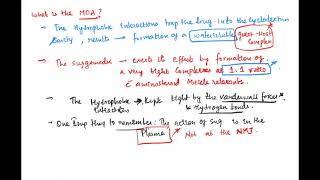 What is the MOA?
- The Hydrophobic Interactions trap the drug into the cyclodextrin
cavity, results → formation of a water soluble guest-Host
Complex
- The Suggamadex → exerts its effect by formation of
a very tight Complexes at 1:1 ratio
c̄ aminosteroid Muscle relaxants.
- The Hydrophobic → kept tight by the vanderwaal forces
Interactions & Hydrogen bonds.
- One Imp thing to remember: The action of Sug is in the
Plasma → Not at the NMJ.